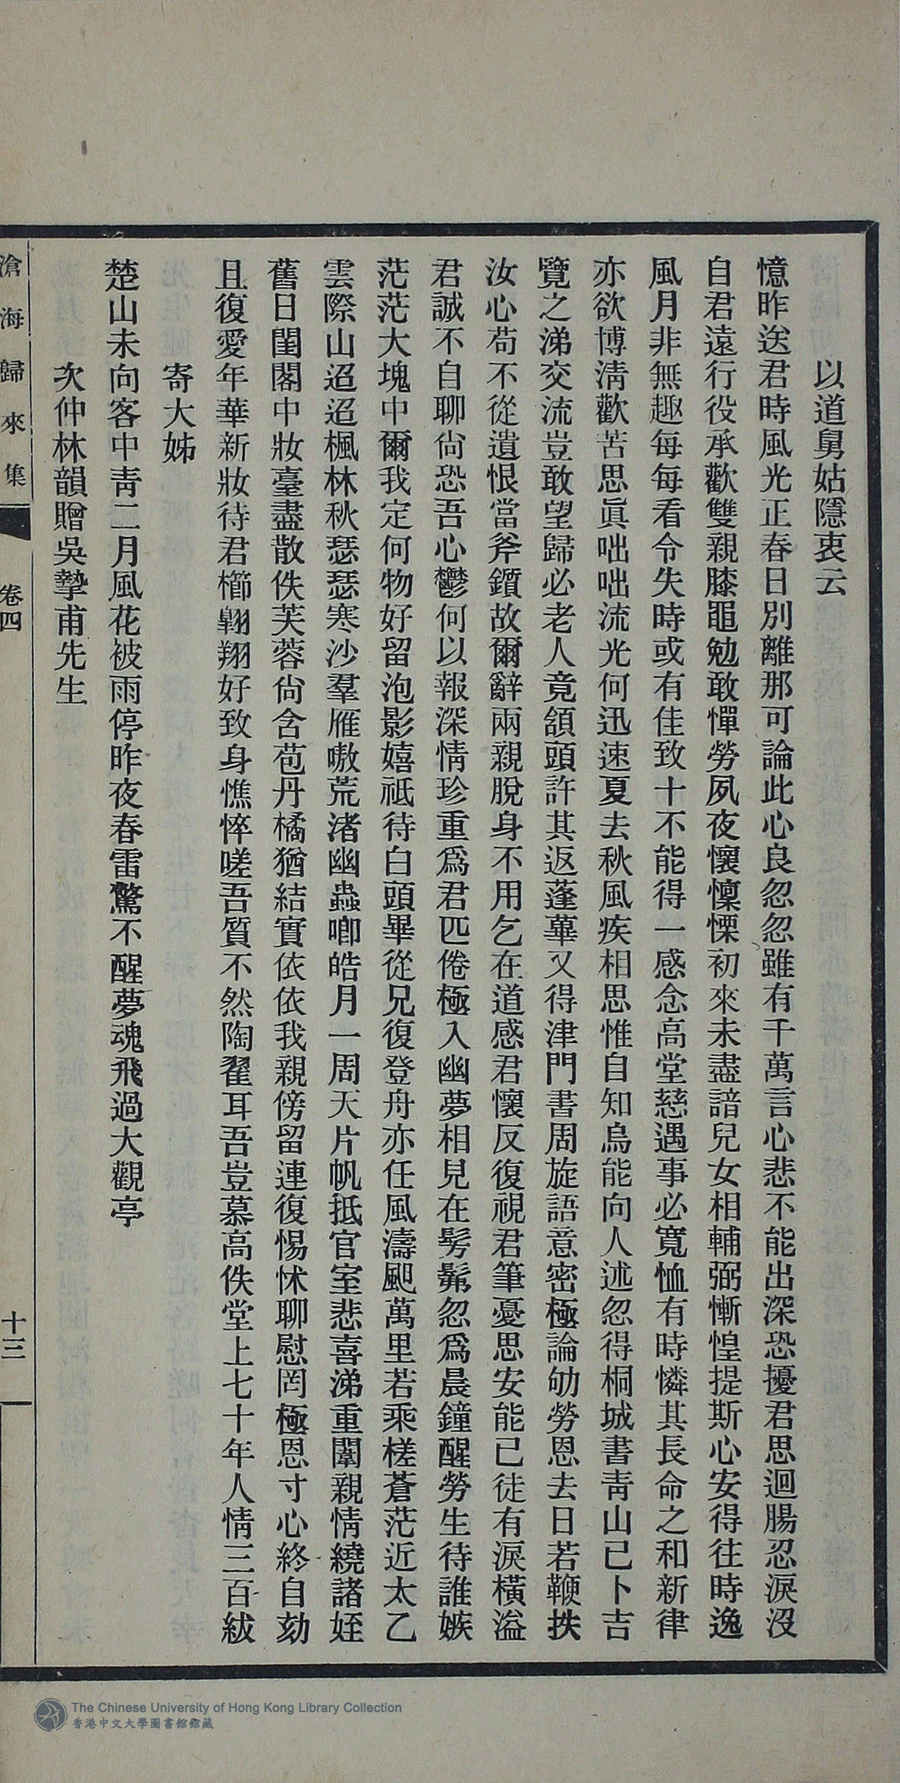 以道舅姑隱衷云
憶昨送君時風光正春日別離那可論此心良忽忽雖有千萬言心悲不能出深恐擾君思迴腸忍淚沒
自君遠行役承歡雙親膝黽勉敢憚勞夙夜懷懍慄初來未盡諳兒女相輔弼慚惶提斯心安得往時逸
風月非無趣每每看令失時或有佳致十不能得一感念高堂慈遇事必寬恤有時憐其長命之和新律
亦欲博淸歡苦思眞咄咄流光何迅速夏去秋風疾相思惟自知烏能向人述忽得桐城書靑山已卜吉
覽之涕交流豈敢望歸必老人竟頷頭許其返蓬蓽又得津門書周旋語意密極論劬勞恩去日若鞭抶
汝心苟不從遺恨當斧鑕故爾辭兩親脫身不用乞在道感君懷反復視君筆憂思安能已徒有淚橫溢
君誠不自聊尙恐吾心鬱何以報深情珍重爲君匹倦極入幽夢相見在髣髴忽爲晨鐘醒勞生待誰嫉
茫茫大塊中爾我定何物好留泡影嬉祗待白頭畢從兄復登舟亦任風濤颶萬里若乘槎蒼茫近太乙
雲際山迢迢楓林秋瑟瑟寒沙羣雁嗷荒渚幽蟲喞皓月一周天片帆抵官室悲喜涕重闈親情繞諸姪
舊日閨閣中妝臺盡散佚芙蓉尙含苞丹橘猶結實依依我親傍留連復惕怵聊慰罔極恩寸心終自劾
且復愛年華新妝待君櫛翺翔好致身憔悴嗟吾質不然陶翟耳吾豈慕高佚堂上七十年人情三百紱
寄大姊
楚山未向客中靑二月風花被雨停昨夜春雷驚不醒夢魂飛過大觀亭
次仲林韻贈吳摯甫先生
滄海歸來集
卷四
十三
The Chinese University of Hong Kong Library Collection
香港中文大學圖書館館藏